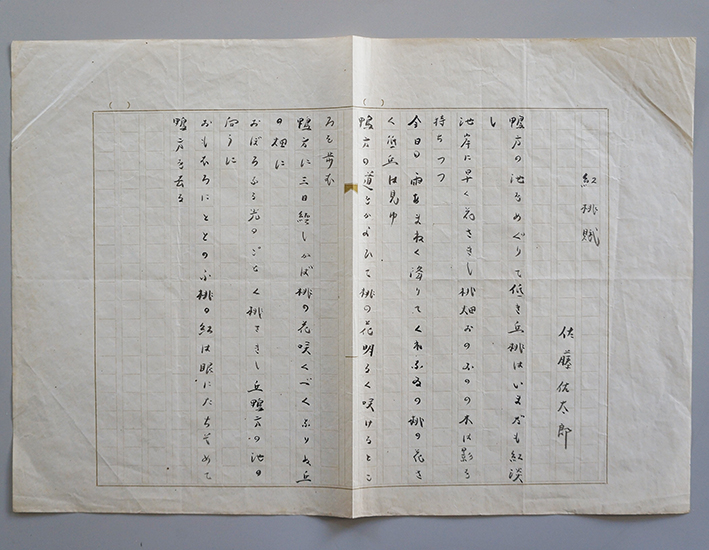 紅桃賦
佐藤佐太郎
鴨方の池をめぐりて低き丘桃はいまだも紅淡
し
池岸に早く花さきし桃畑おのおのの木は影を
持ちつつ
今日の雨あまねく降りてくれなゐの桃の花さ
く低丘は見ゆ
鴨方の道をかよひて桃の花明るく咲けるとこ
ろを歩む
鴨方に三日経しかば桃の花咲くべくなりぬ丘
の畑に
おぼろなる光のごとく桃さきし丘鴨方の池の
向うに
おもおろにととのふ桃の紅は眼にたちそめて
鴨方を去る